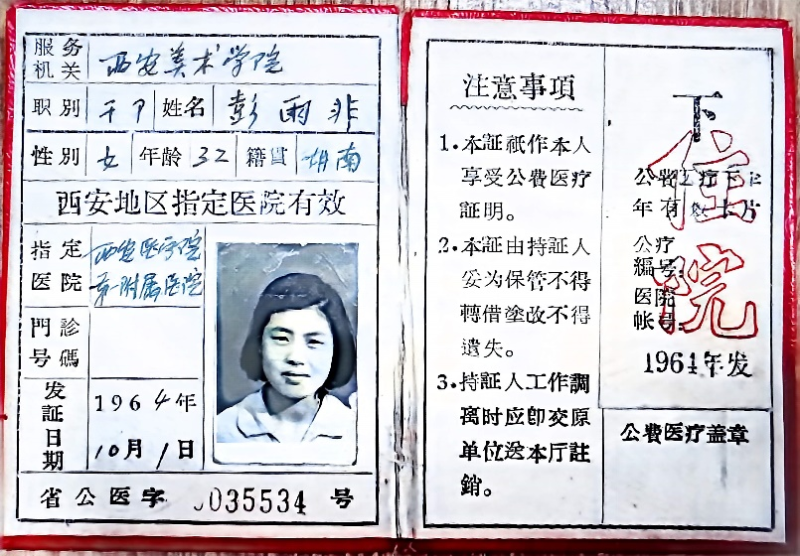 服务机关 西安美术学院
职别 干卩 姓名 彭雨非
性别 女 年龄 32 籍貫 湖南
西安地区指定医院有效
指定医院 西安医学院
第一附属医院
門診号碼
发証日期 1964年
10月1日
省公医字 035534 号
注意事項
1.本証祇作本人
享受公費医疗
証明。
2.本証由持証人
妥为保管不得
轉借塗改不得
遺失。
3.持証人工作調
离时应即交原
单位送本厅註
銷。
下
住院
公費医疗
年有
公疗
編号
医院
帐号
1964年发
公費医疗盖章